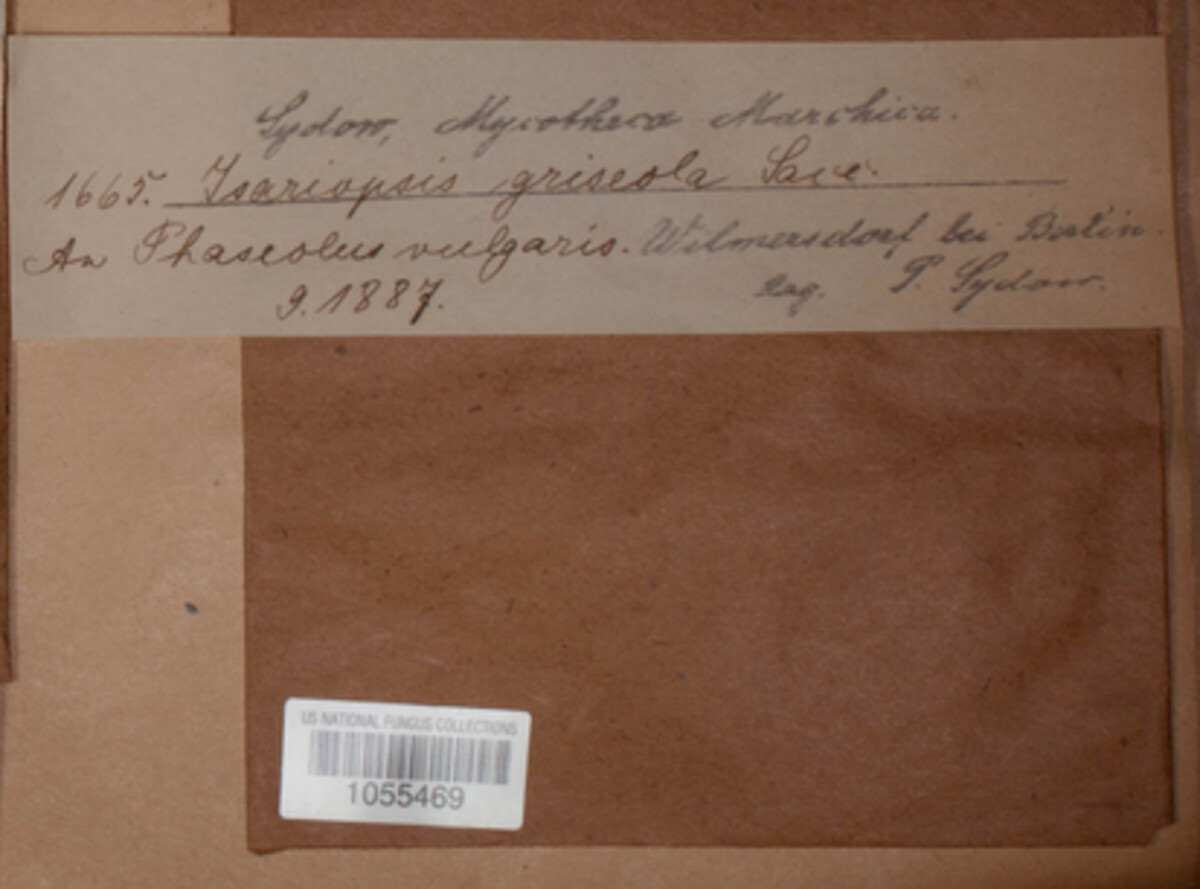 Sydow, Mycotheca Marchica.
1665. Isariopsis griseola Sacc.
An Phaseolus vulgaris. Wilmersdorf bei Berlin.
9. 1887. leg. P. Sydow.
US NATIONAL FUNGUS COLLECTIONS
1055469